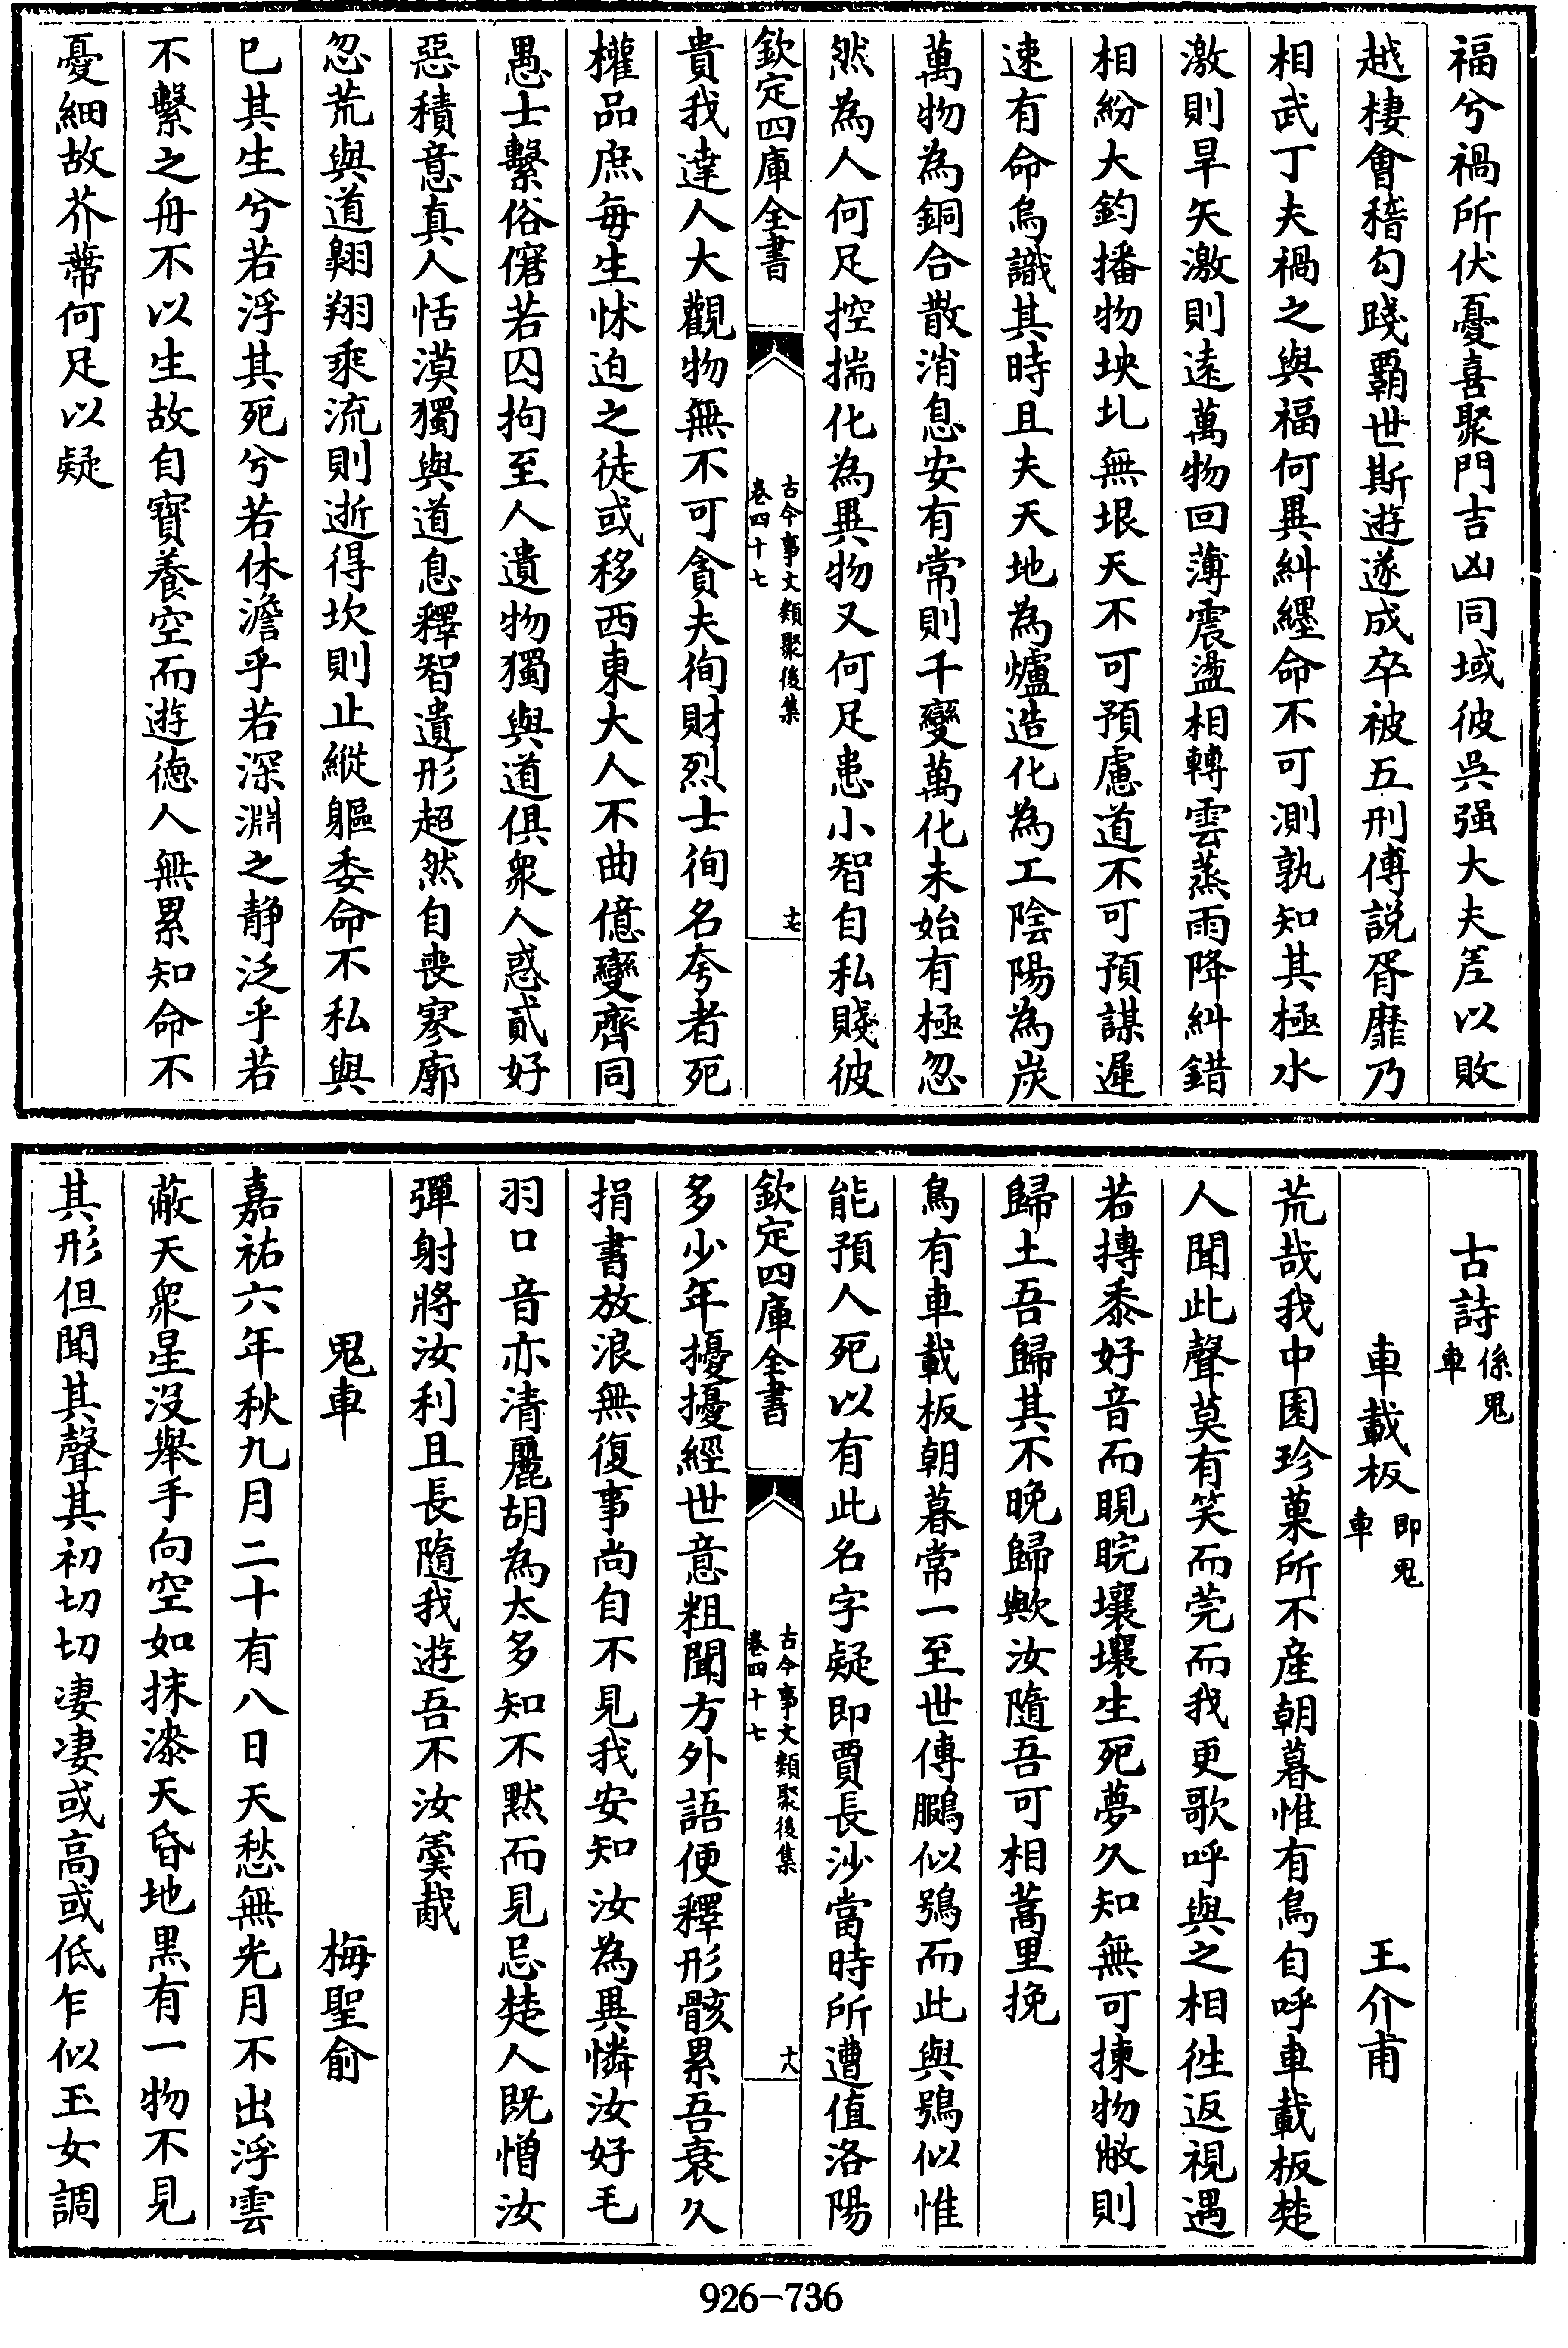 福兮禍所伏憂喜聚門吉凶同域彼吳强大夫差以敗
越棲會稽勾踐覇世斯遊遂成卒被五刑傅説胥靡乃
相武丁夫禍之與福何異糾纆命不可測孰知其極水
激則旱矢激則遠萬物回薄震盪相轉雲蒸雨降糾錯
相紛大鈞播物坱圠無垠天不可預慮道不可預謀遲
速有命烏識其時且夫天地為爐造化為工陰陽為炭
萬物為銅合散消息安有常則千變萬化未始有極忽
然為人何足控揣化為異物又何足患小智自私賤彼
欽定四庫全書
古今事文類聚後集
卷四十七
十七
貴我達人大觀物無不可貪夫徇財烈士徇名夸者死
權品庶每生怵迫之徒或移西東大人不曲億變齊同
愚士繫俗僒若囚拘至人遺物獨與道俱衆人惑貳好
惡積意真人恬漠獨與道息釋智遺形超然自喪寥廓
忽荒與道翺翔乘流則逝得坎則止縱軀委命不私與
已其生兮若浮其死兮若休澹乎若深淵之静泛乎若
不繫之舟不以生故自寳養空而遊徳人無累知命不
憂細故芥蔕何足以疑
古詩係鬼車
車載板即鬼車 王介甫
荒哉我中園珍菓所不産朝暮惟有鳥自呼車載板楚
人聞此聲莫有笑而莞而我更歌呼與之相徃返視遇
若摶黍好音而睍睆壤壤生死夢久知無可揀物敝則
歸土吾歸其不晚歸歟汝隨吾可相蒿里挽
鳥有車載板朝暮常一至世傳鵩似鴞而此與鴞似惟
能預人死以有此名字疑即賈長沙當時所遭值洛陽
欽定四庫全書
古今事文類聚後集
卷四十七
十八
多少年擾擾經世意粗聞方外語便釋形骸累吾衰久
捐書放浪無復事尚自不見我安知汝為異憐汝好毛
羽口音亦清麗胡為太多知不黙而見忌楚人既憎汝
彈射將汝利且長隨我遊吾不汝羮胾
鬼車 梅聖俞
嘉祐六年秋九月二十有八日天愁無光月不出浮雲
蔽天衆星没舉手向空如抹漆天昏地黒有一物不見
其形但聞其聲其初切切凄凄或高或低乍似玉女調
926-736